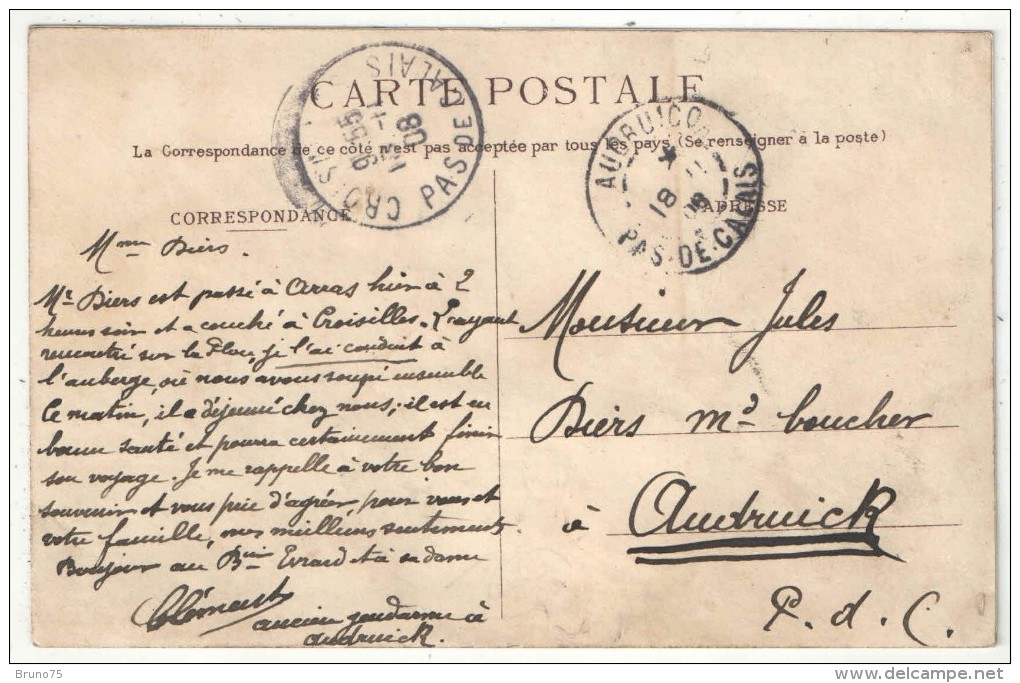 CARTE POSTALE
La Correspondance de ce côté n'est pas acceptée par tous les pays (Se renseigner à la poste)
CORRESPONDANCE
ADRESSE
CROISILLES PAS DE CALAIS
9 55
08
AUDRUICQ
18 11
08
PAS-DE-CALAIS
Mme Diers.
Mr Diers est passé à Arras hier à 2
heures soir et a couché à Croisilles. L'ayant
rencontré sur la Place, je l'ai conduit à
l'auberge, où nous avons soupé ensemble
Ce matin, il a déjeuné chez nous; il est en
bonne santé et pourra certainement finir
son voyage. Je me rappelle à votre bon
souvenir et vous prie d'agréer, pour vous et
votre famille, nos meilleurs sentiments.
Bonjour au Bier Evrard et à sa dame
Clémart
ancien gendarme à
Audruick.
Monsieur Jules
Diers md boucher
à Audruick
P. d. C.
Bruno75
www.delcampe.net